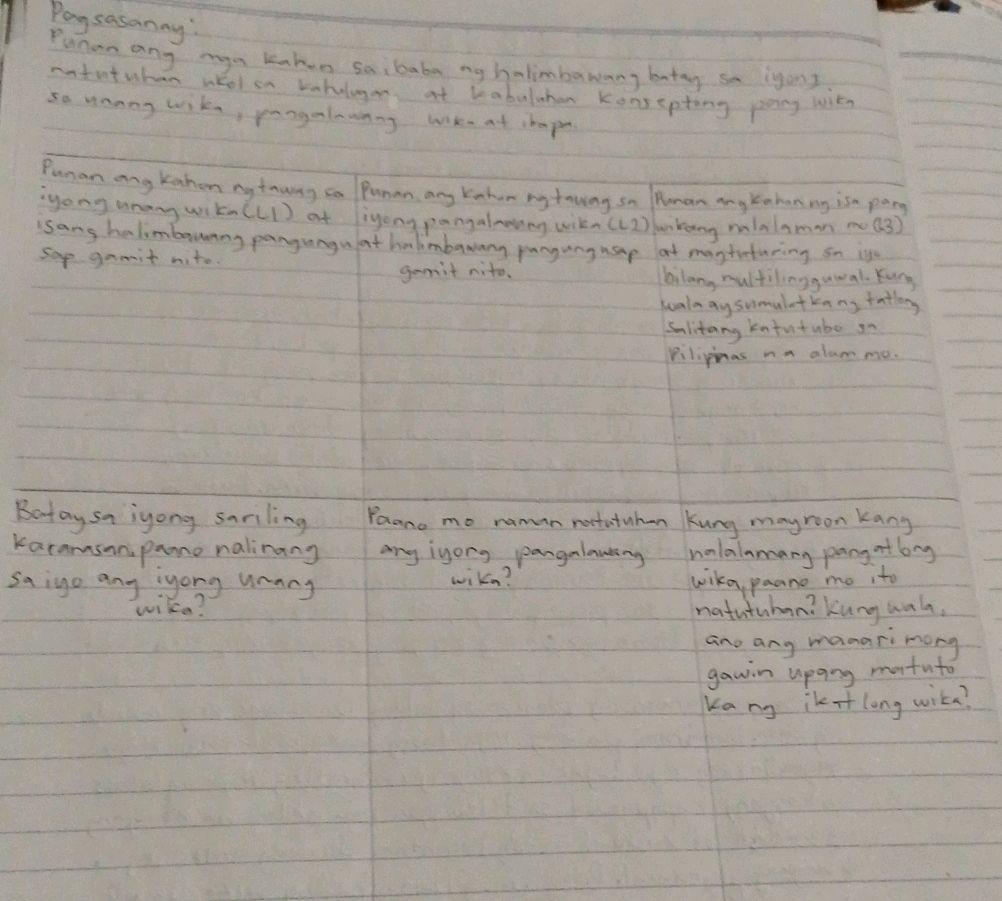 Pagsasanay:
Punan ang mga kahon sa ibaba ng halimbawang batay sa iyong
natutuhan ukol sa kahulugan at kabuluhan konseptong pang wika
sa unang wika, pangalawang wika at iba pa.
Punan ang kahon ng tawag sa
iyong unang wika (L1) at
isang halimbawang pangungu
sap gamit nito.
Punan ang kahon ng tawag sa
iyong pangalawang wika (L2)
at halimbawang pangungusap
gamit nito.
Punan ang kahon ng isa pang
wikang nalalaman mo (L3)
at magtuturing sa iyo
bilang multilingguwal. Kung
wala ay sumulat kang tatlong
salitang katutubo sa
Pilipinas na alam mo.
Batay sa iyong sariling
karanasan, paano nalinang
sa iyo ang iyong unang
wika?
Paano mo naman natutuhan
ang iyong pangalawang
wika?
Kung mayroon kang
nalalamang pangatlong
wika, paano mo ito
natutuhan? Kung wala,
ano ang maaari mong
gawin upang matuto
ka ng ikatlong wika?